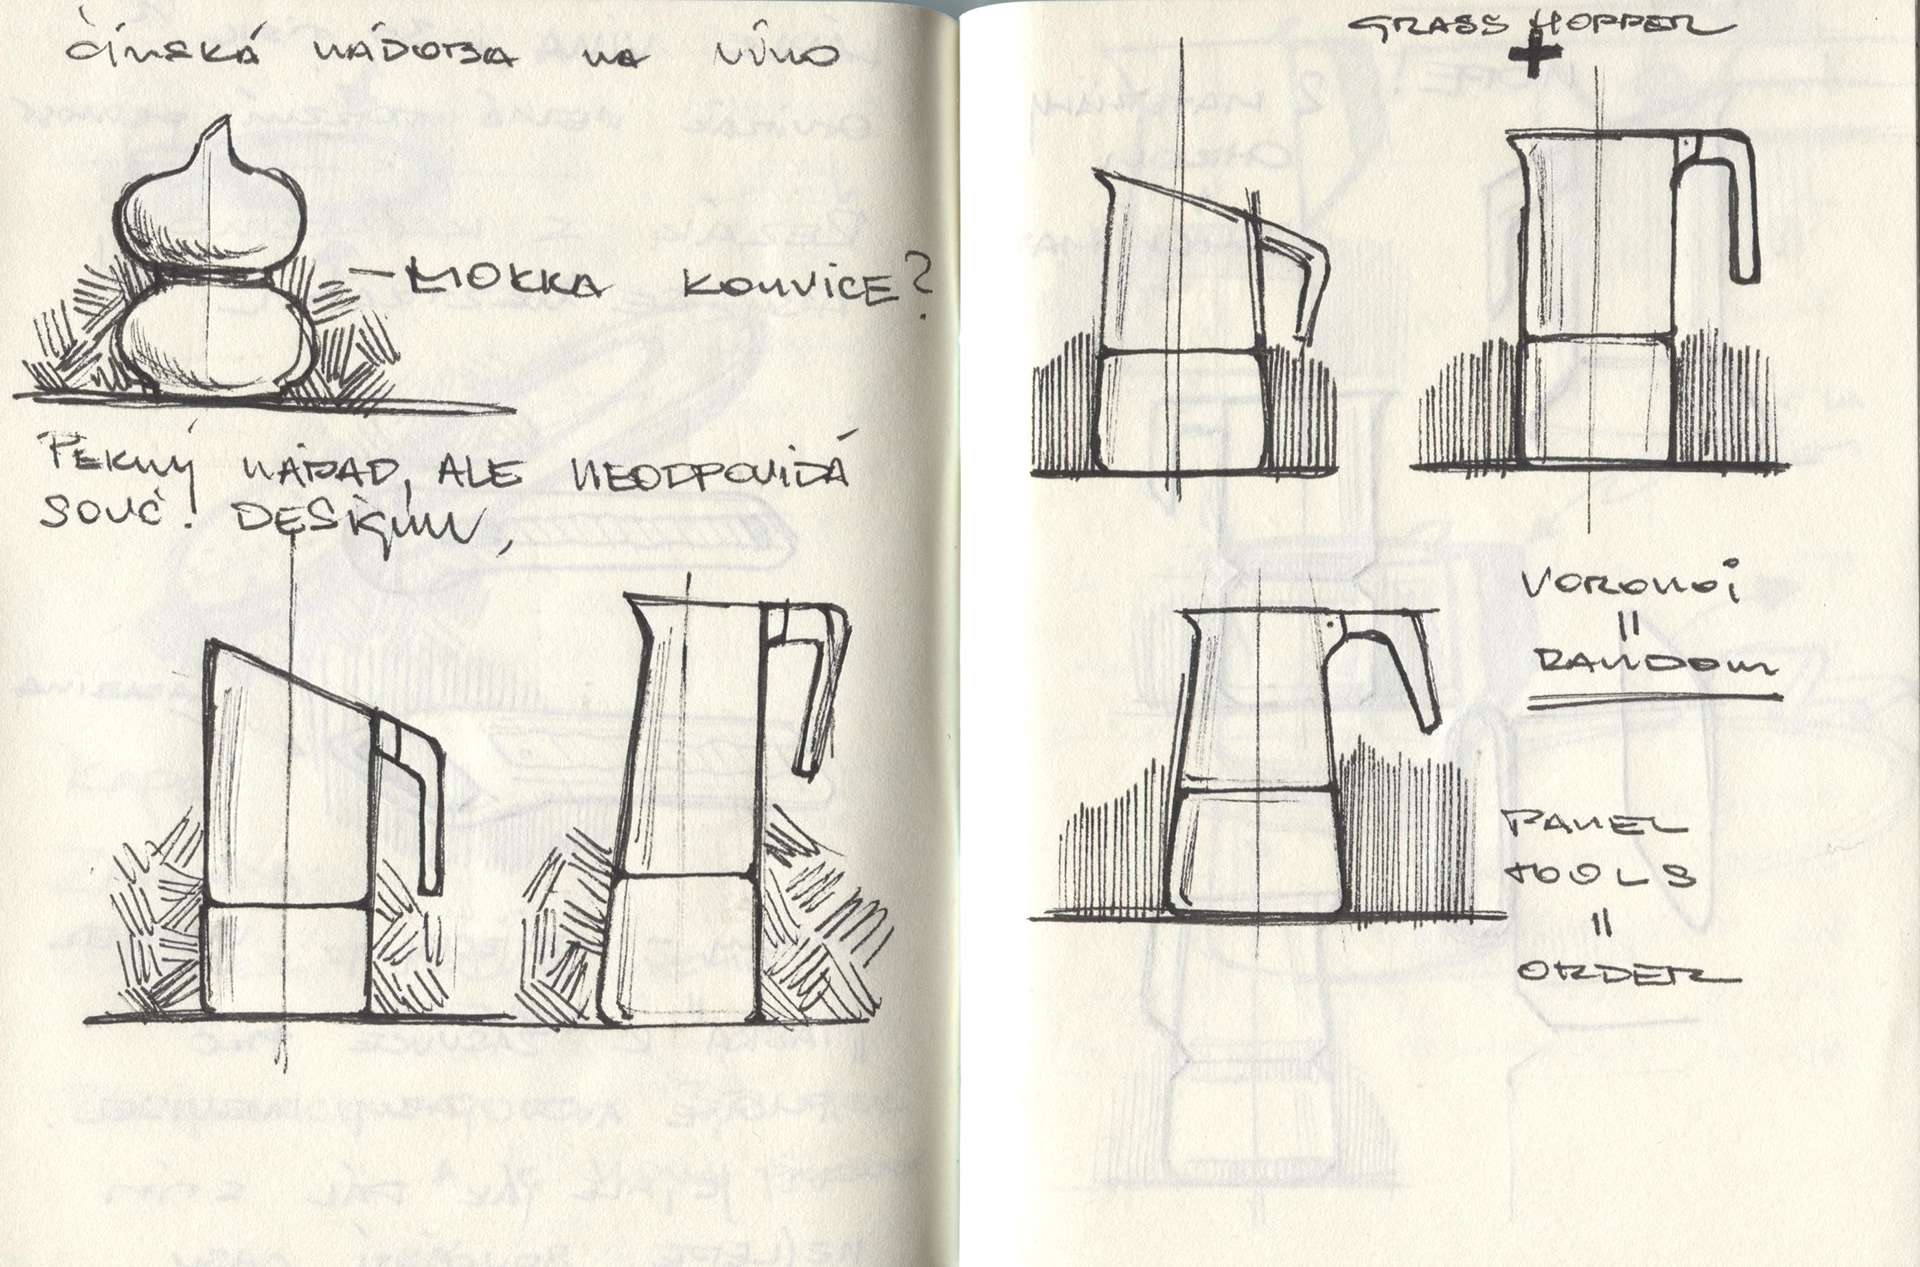 ČÍNSKÁ NÁDOBA NA VÍNO
– MOKKA KONVICE?
PEKNÝ NÁPAD, ALE NEODPOVÍDÁ
SOUČ. DESIGNU,
GRASS HOPPER
+
VORONOI
=
RANDOM
PANEL
TOOLS
=
ORDER